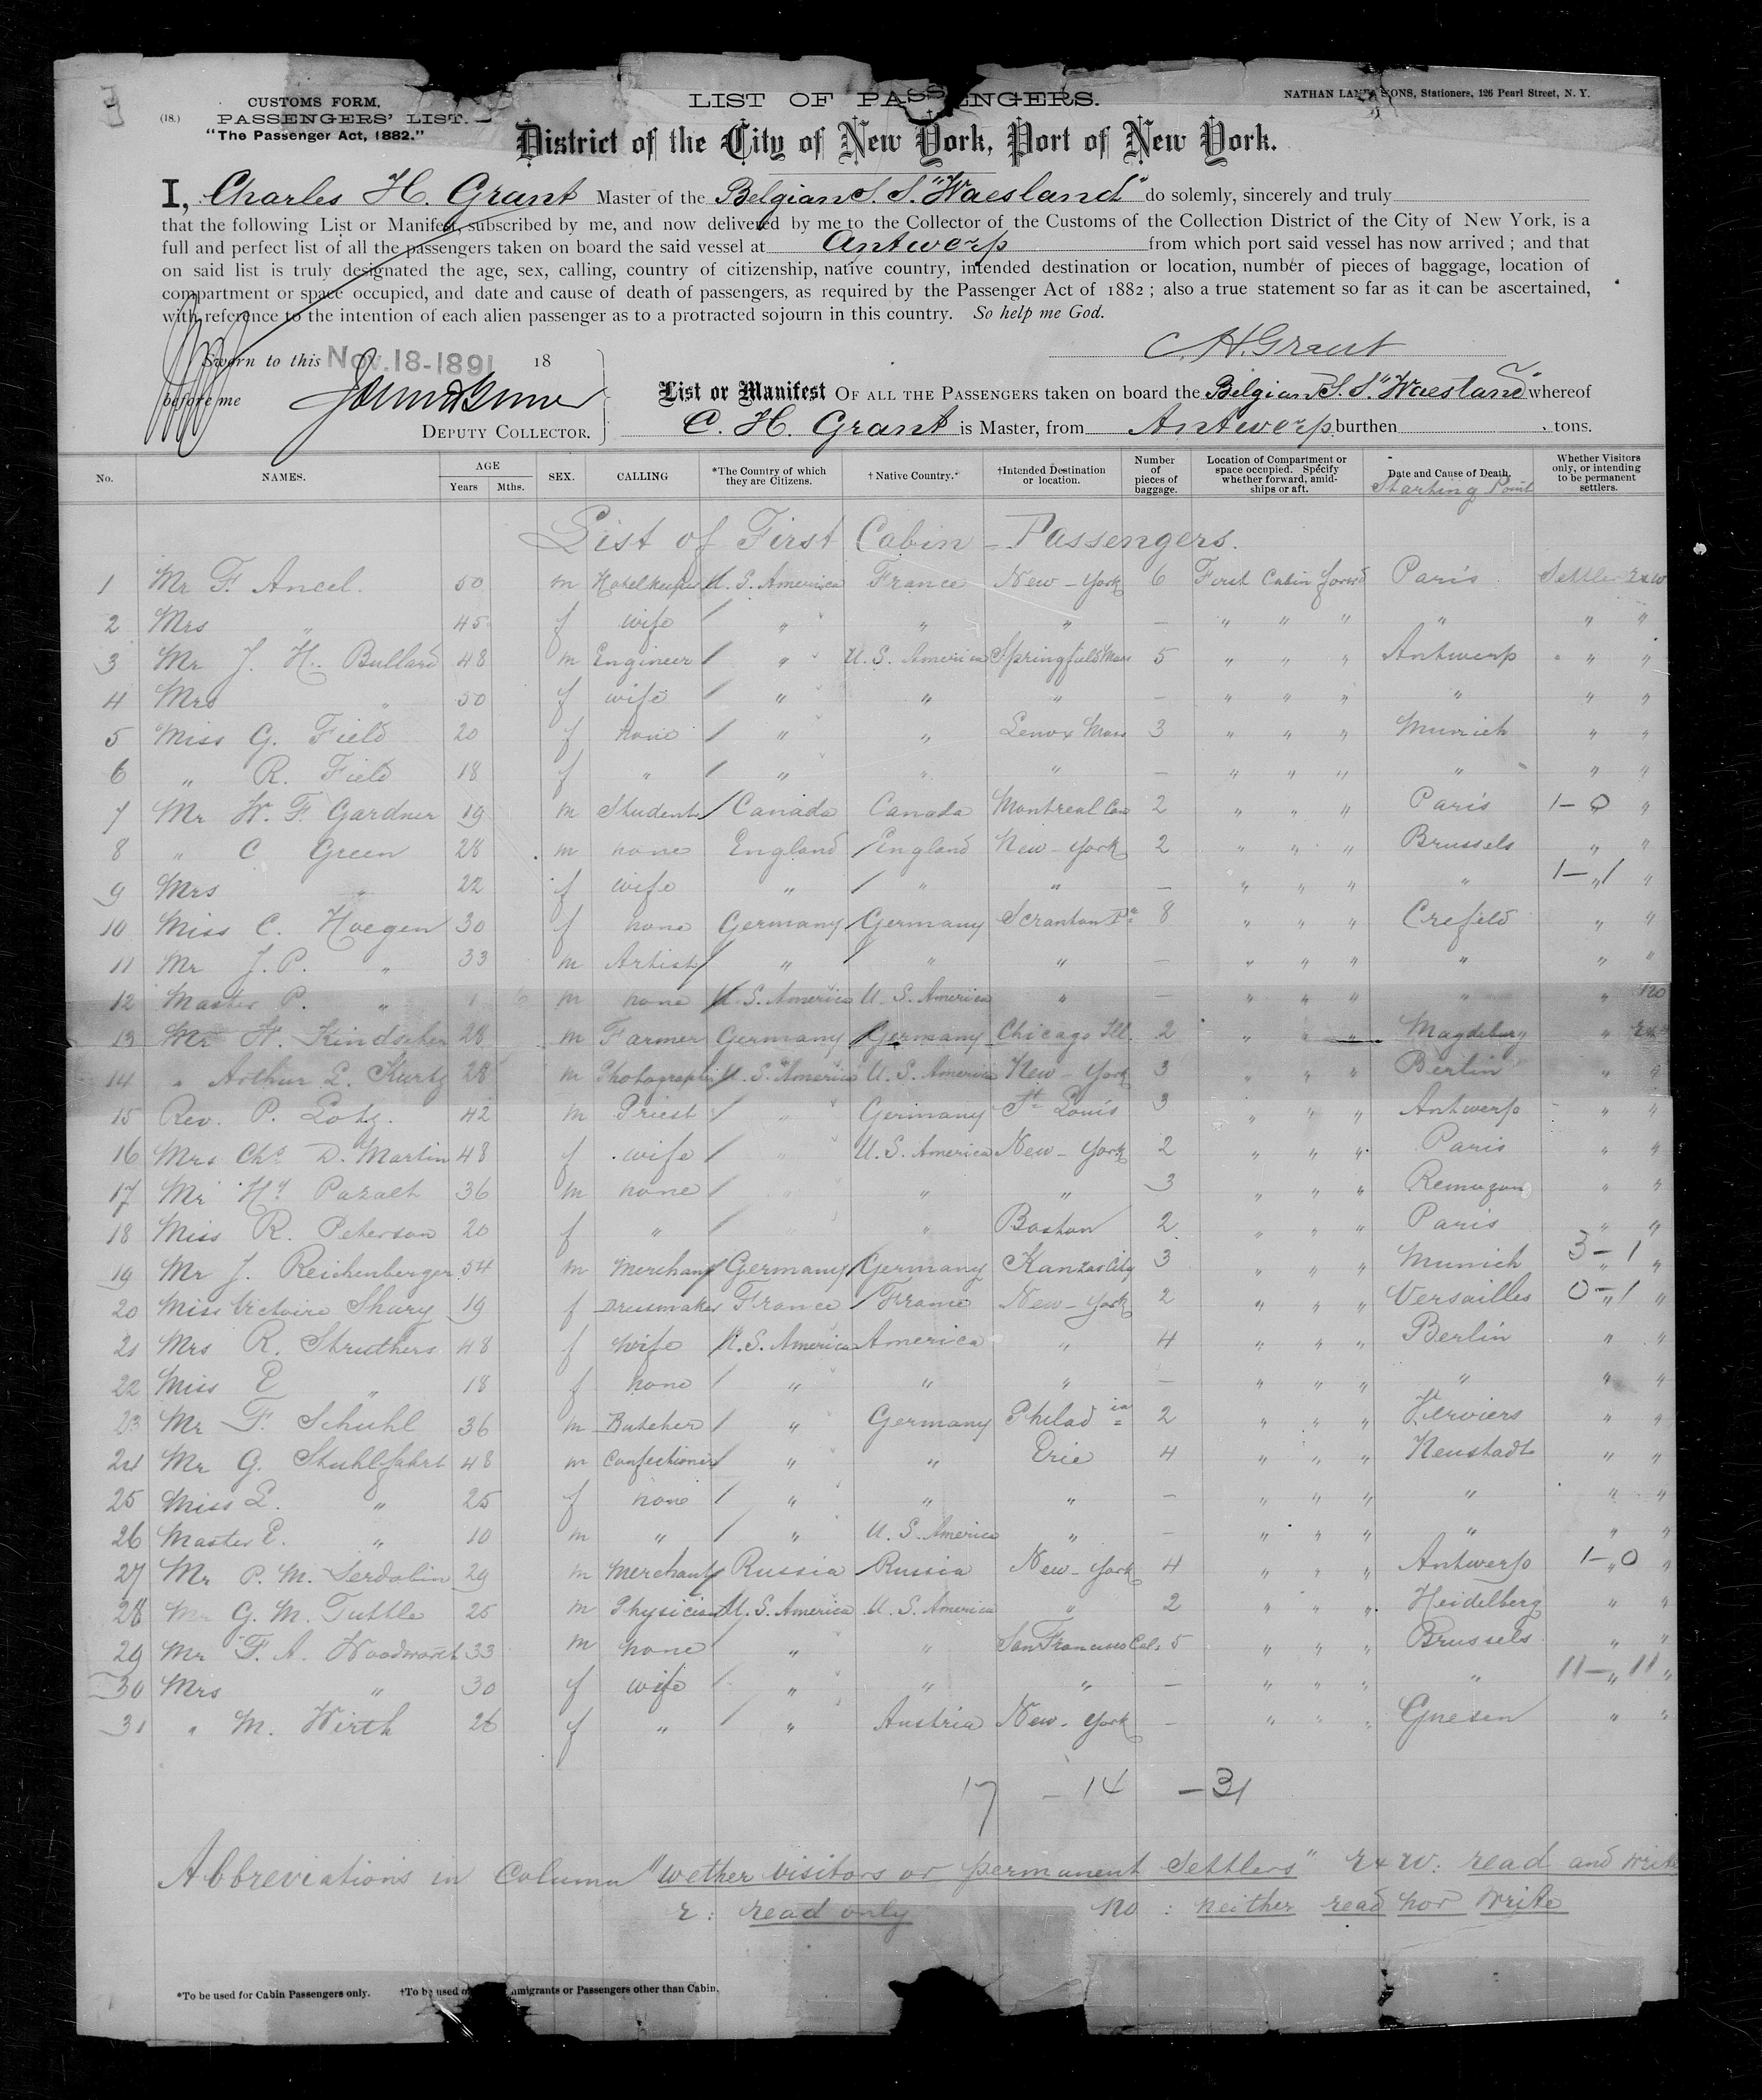 (18.)
CUSTOMS FORM,
PASSENGERS' LIST.
"The Passenger Act, 1882."
LIST OF PASSENGERS.
NATHAN LANE'S SONS, Stationers, 126 Pearl Street, N. Y.
District of the City of New York, Port of New York.
I, Charles H. Grant Master of the Belgian S. S. "Waesland" do solemly, sincerely and truly
that the following List or Manifest, subscribed by me, and now delivered by me to the Collector of the Customs of the Collection District of the City of New York, is a
full and perfect list of all the passengers taken on board the said vessel at Antwerp from which port said vessel has now arrived ; and that
on said list is truly designated the age, sex, calling, country of citizenship, native country, intended destination or location, number of pieces of baggage, location of
compartment or space occupied, and date and cause of death of passengers, as required by the Passenger Act of 1882 ; also a true statement so far as it can be ascertained,
with reference to the intention of each alien passenger as to a protracted sojourn in this country. So help me God.
C. H. Grant
Sworn to this Nov. 18-1891 18
before me
DEPUTY COLLECTOR.
List or Manifest OF ALL THE PASSENGERS taken on board the Belgian S. S. "Waesland" whereof
C. H. Grant is Master, from Antwerp burthen tons.
No. NAMES. AGE Years Mths. SEX. CALLING *The Country of which they are Citizens. †Native Country. †Intended Destination or location. Number of pieces of baggage. Location of Compartment or space occupied. Specify whether forward, amidships or aft. Date and Cause of Death. Starting Point Whether Visitors only, or intending to be permanent settlers.
List of First Cabin - Passengers.
1 Mr F. Ancel. 50 m Hotelkeeper U. S. America France New-York 6 First Cabin forwd Paris Settler r&w
2 Mrs " 45 f wife / " " " — " " " " " "
3 Mr J. H. Bullard 48 m Engineer / " U. S. America Springfield Mass 5 " " " Antwerp " "
4 Mrs " 50 f wife / " " " — " " " " " "
5 Miss G. Field 20 f none / " " Lenox Mass 3 " " " Munich " "
6 " R. Field 18 f " / " " " — " " " " " "
7 Mr W. F. Gardner 19 m Student / Canada Canada Montreal Can 2 " " " Paris 1-0 "
8 " C Green 28 m none England / England New-York 2 " " " Brussels " "
9 Mrs " 22 f wife " / " " — " " " " 1-1 "
10 Miss C. Hoegen 30 f none Germany / Germany Scranton Pa 8 " " " Crefeld " "
11 Mr J. P. " 33 m Artist / " / " " — " " " " " "
12 Master P. " 1 m none U. S. America U. S. America " — " " " " " no
13 Mr H. Kindscher 28 m Farmer Germany / Germany Chicago Ill. 2 " " " Magdeburg " r&w
14 " Arthur L. Kurtz 28 m Photographer U. S. America U. S. America New-York 3 " " " Berlin " "
15 Rev. P. Lotz. 42 m Priest / " Germany St Louis 3 " " " Antwerp " "
16 Mrs Chs D. Martin 48 f wife / " U. S. America New-York 2 " " " Paris " "
17 Mr Hy 36 m none / " " " 3 " " " " "
18 Miss R. Peterson 20 f " / " " Boston 2 " " " Paris " "
19 Mr J. Reichenberger 54 m Merchant / Germany / Germany Kansas City 3 " " " Munich 3-1 "
20 Miss Victoire Shary 19 f Dressmaker France / France New-York 2 " " " Versailles 0-1 "
21 Mrs R. Struthers 48 f wife U. S. America America " 4 " " " Berlin " "
22 Miss E " 18 f none / " " " — " " " " " "
23 Mr F. Schuhl 36 m Butcher / " Germany Philadia 2 " " " Verviers " "
24 Mr G. Stuhlfahrt 48 m Confectioner / " " Erie 4 " " " Neustadt " "
25 Miss L. " 25 f none / " " " — " " " " " "
26 Master E. " 10 m " / " U. S. America " — " " " " " "
27 Mr P. M. Serdobin 29 m Merchant / Russia / Russia New-York 4 " " " Antwerp 1-0 "
28 Mr G. M. Tuttle 25 m Physician U. S. America U. S. America " 2 " " " Heidelberg " "
29 Mr F. A. Woodworth 33 m none / " " San Francisco Cal. 5 " " " Brussels " "
30 Mrs " 30 f wife / " " " — " " " " 11-11 "
31 " M. Wirth 26 f " / " Austria New-York — " " " Gnesen " "
17 - 14 - 31
Abbreviations in Column "wether visitors or permanent Settlers" r&w: read and write
r: read only no : neither read nor write
*To be used for Cabin Passengers only. †To be used o mmigrants or Passengers other than Cabin.